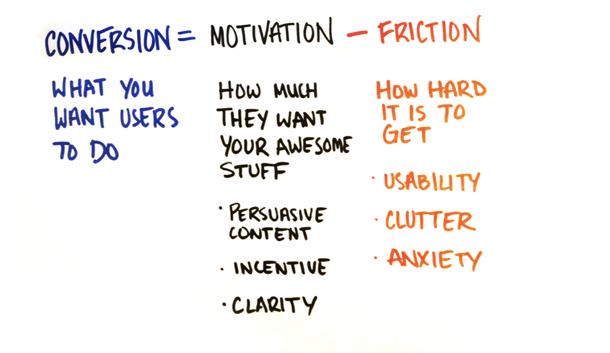 CONVERSION = MOTIVATION − FRICTION
WHAT YOU
WANT USERS
TO DO
HOW MUCH
THEY WANT
YOUR AWESOME
STUFF
· PERSUASIVE
CONTENT
· INCENTIVE
· CLARITY
HOW HARD
IT IS TO
GET
· USABILITY
· CLUTTER
· ANXIETY